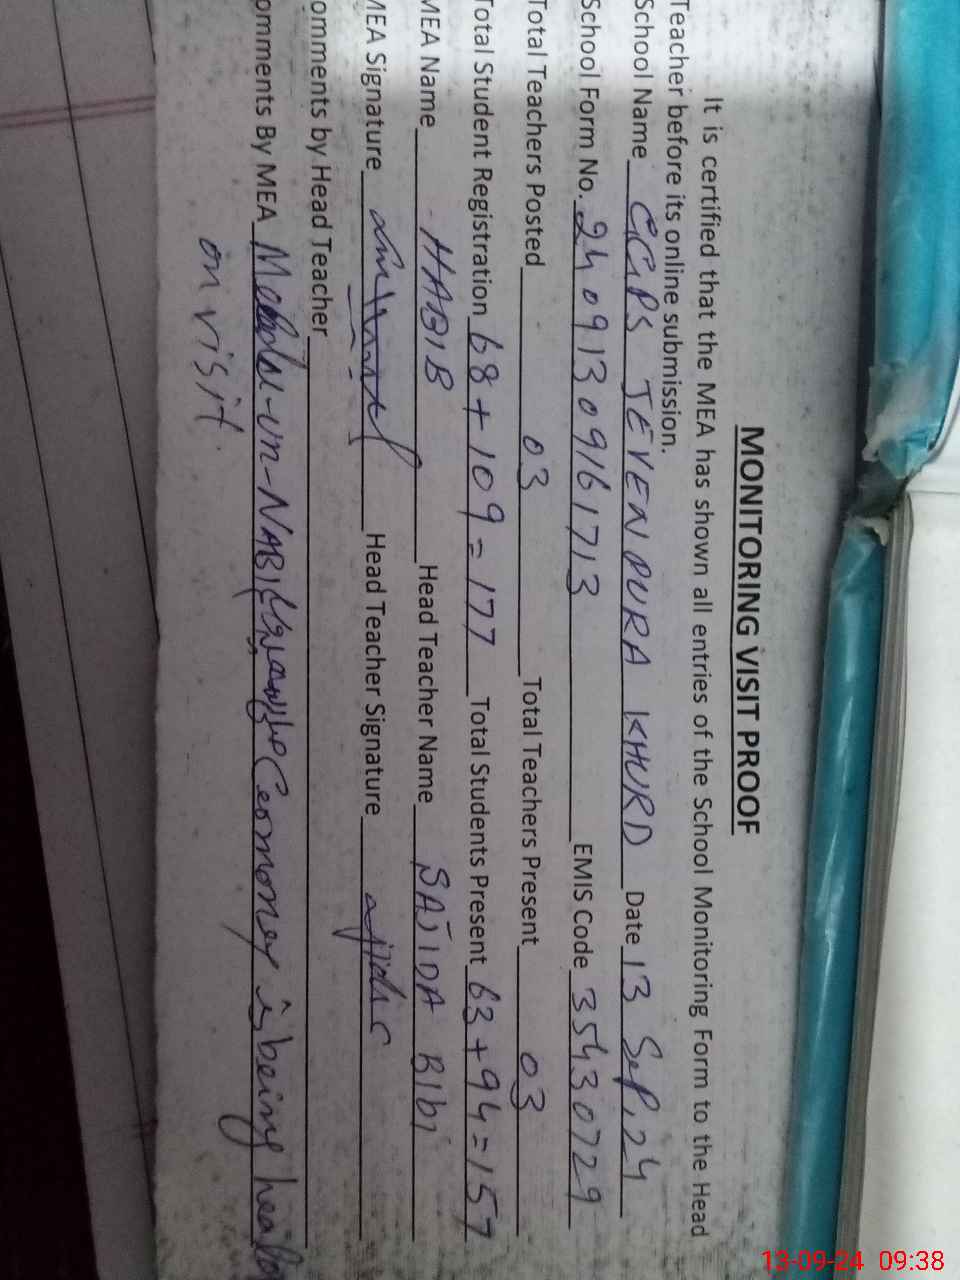 MONITORING VISIT PROOF
It is certified that the MEA has shown all entries of the School Monitoring Form to the Head
Teacher before its online submission.
School Name GGPS JEVENPURA KHURD Date 13 Sep, 24
School Form No. 24091309161713 EMIS Code 35430729
Total Teachers Posted 03 Total Teachers Present 03
Total Student Registration 68+109=177 Total Students Present 63+94=157
MEA Name HABIB Head Teacher Name SAJIDA BIBI
MEA Signature Head Teacher Signature
omments by Head Teacher
omments By MEA -un-NABI Ceremoney is being
on visit.
13-09-24 09:38